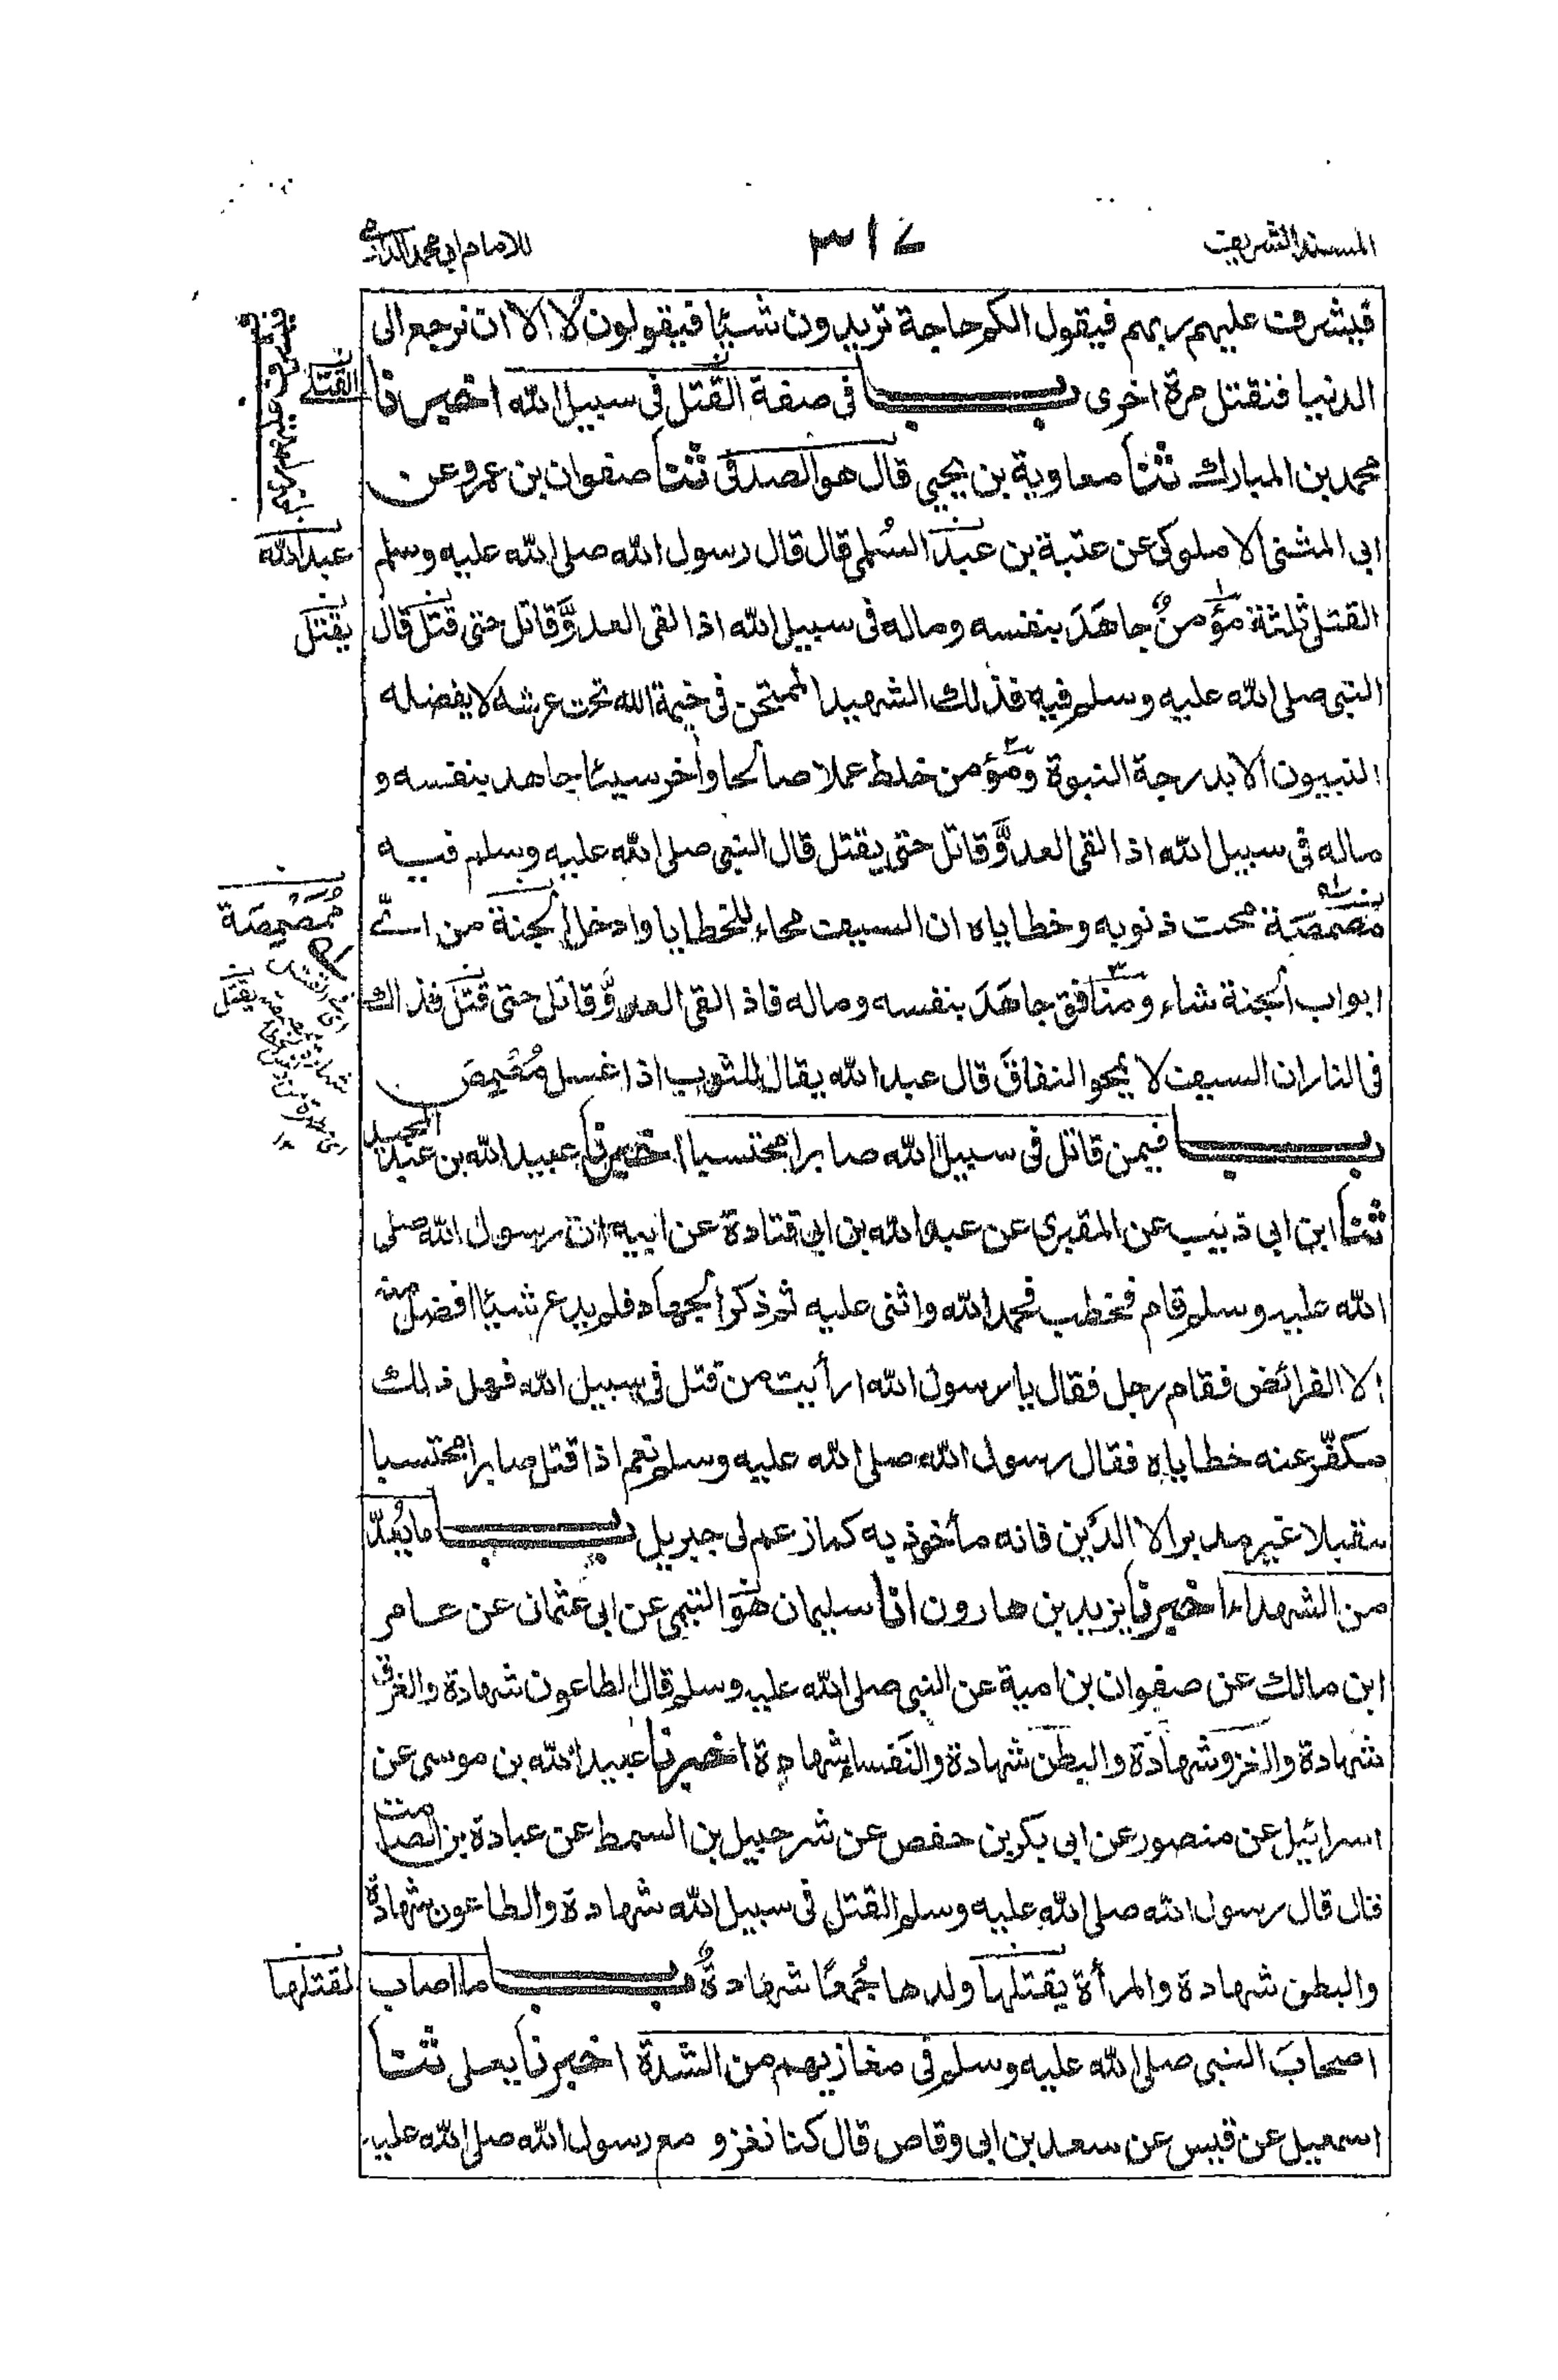 المسند الشريف
٣١٧
للامام ابي محمد الدارمي
فيشرف عليهم ربهم فيقول الكم حاجة تريدون شيئا فيقولون لا الا ان نرجع الى
الدنيا فنقتل مرة اخرى باب فى صفة القتل فى سبيل الله اخبرنا
القتلى
محمد بن المبارك ثنا معاوية بن يحيى قال هو الصدفى ثنا صفوان بن عمرو عن
ابى المثنى الاملوكى عن عتبة بن عبد السُلمى قال قال رسول الله صلى الله عليه وسلم
عبد الله
القتلى ثلثة مؤمنٌ جاهَدَ بنفسه وماله فى سبيل الله اذا لقى العدوَّ قاتل حتى قتل قال
يقتل
النبى صلى الله عليه وسلم فيه فذلك الشهيد الممتحن فى خيمة الله تحت عرشه لا يفضله
النبيون الا بدرجة النبوة ومؤمن خلط عملا صالحا وأخر سيئا جاهد بنفسه و
ماله فى سبيل الله اذا لقى العدوَّ قاتل حتى يقتل قال النبى صلى الله عليه وسلم فيه
مصمصة محت ذنوبه وخطاياه ان السيف محاء للخطايا وادخل الجنة من اىّ
مُمَصْمِصَة
ابواب الجنة شاء ومنافق جاهَدَ بنفسه وماله فاذا لقى العدوَّ قاتل حتى قتل فذاك
يقتل
فى النار ان السيف لا يمحو النفاقَ قال عبد الله يقال للثوب اذا غسل مُصْمِصَ
باب فيمن قاتل فى سبيل الله صابرا محتسبا اخبرنا عبيد الله بن عبد المجيد
ثنا ابن ابى ذئيب عن المقبرى عن عبد الله بن ابى قتادة عن ابيه ان رسول الله صلى
الله عليه وسلم قام فخطب فحمد الله واثنى عليه ثم ذكر الجهاد فلم يدع شيئا افضل منه
الا الفرائض فقام رجل فقال يا رسول الله ارأيت من قتل فى سبيل الله فهل ذلك
مكفّر عنه خطاياه فقال رسول الله صلى الله عليه وسلم نعم اذا قتل صابرا محتسبا
مقبلا غير مدبر الا الدَّين فانه مأخوذ به كما زعم لى جبريل باب ما يُعَدّ
من الشهداء اخبرنا يزيد بن هارون انا سليمان هُوَ التيمى عن ابى عثمان عن عامر
ابن مالك عن صفوان بن امية عن النبى صلى الله عليه وسلم قال الطاعون شهادة والغرق
شهادة والغزو شهادة والبطن شهادة والنفساء شهادة اخبرنا عبيد الله بن موسى عن
اسرائيل عن منصور عن ابى بكر بن حفص عن شرحبيل بن السمط عن عبادة بن الصامت
قال قال رسول الله صلى الله عليه وسلم القتل فى سبيل الله شهادة والطاعون شهادة
والبطن شهادة والمرأة يقتلها ولدها جُمعًا شهادةٌ باب ما اصاب
لقتلها
اصحابَ النبى صلى الله عليه وسلم فى مغازيهم من الشدة اخبرنا يعلى ثنا
اسمعيل عن قيس عن سعد بن ابى وقاص قال كنا نغزو مع رسول الله صلى الله عليه